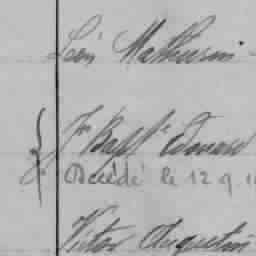 Léon Mathurin
Jn Bapte Edouard
Décédé le 12 9
Victor Augustin